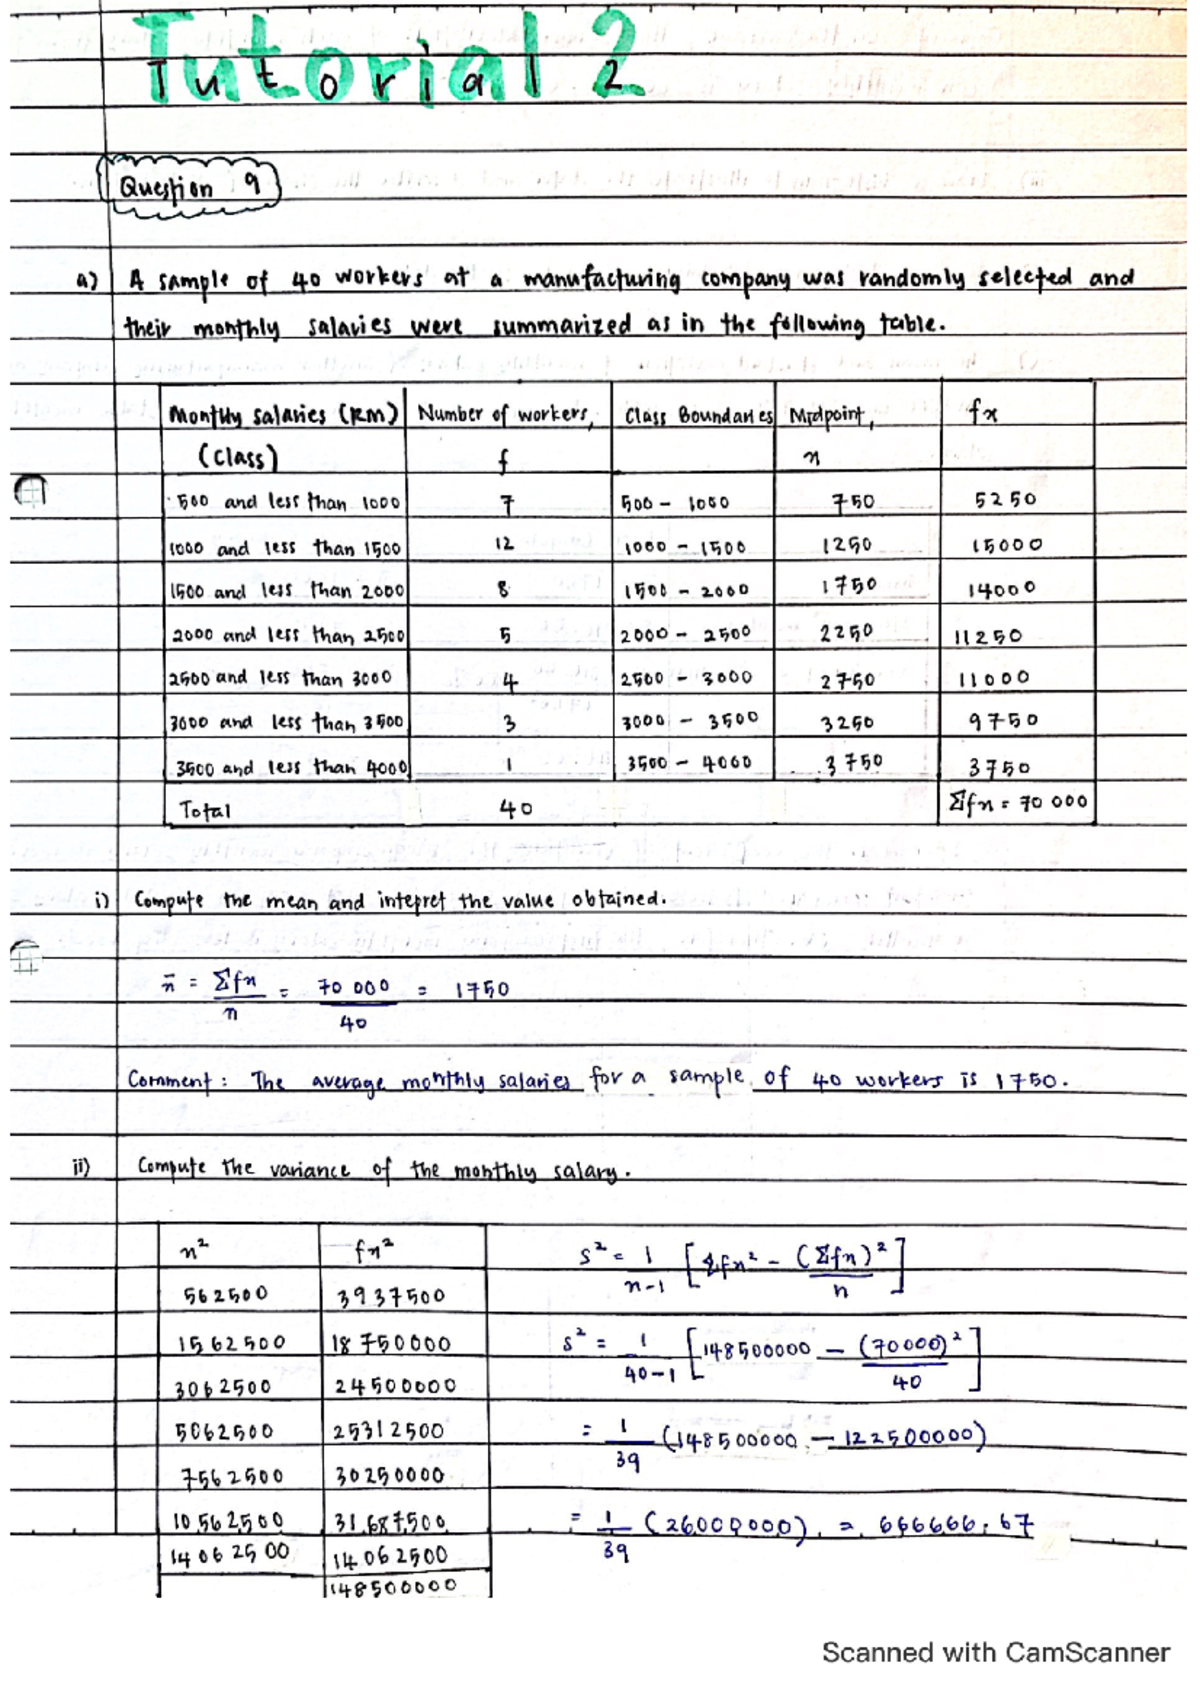 Tutorial 2
Question 9
a) A sample of 40 workers at a manufacturing company was randomly selected and
their monthly salaries were summarized as in the following table.
Monthly salaries (RM) (class) | Number of workers, f | Class Boundaries | Midpoint, x | fx
500 and less than 1000 | 7 | 500 - 1000 | 750 | 5250
1000 and less than 1500 | 12 | 1000 - 1500 | 1250 | 15000
1500 and less than 2000 | 8 | 1500 - 2000 | 1750 | 14000
2000 and less than 2500 | 5 | 2000 - 2500 | 2250 | 11250
2500 and less than 3000 | 4 | 2500 - 3000 | 2750 | 11000
3000 and less than 3500 | 3 | 3000 - 3500 | 3250 | 9750
3500 and less than 4000 | 1 | 3500 - 4000 | 3750 | 3750
Total | 40 | Σfx = 70 000
i) Compute the mean and intepret the value obtained.
x̄ = Σfx / n = 70 000 / 40 = 1750
Comment : The average monthly salaries for a sample of 40 workers is 1750.
ii) Compute the variance of the monthly salary.
x² | fx²
562500 | 3937500
1562500 | 18750000
3062500 | 24500000
5062500 | 25312500
7562500 | 30250000
10562500 | 31687500
14062500 | 14062500
148500000
s² = 1/(n-1) [Σfx² - (Σfx)²/n]
s² = 1/(40-1) [148500000 - (70000)²/40]
= 1/39 (148500000 - 122500000)
= 1/39 (26000000) = 666666.67
Scanned with CamScanner